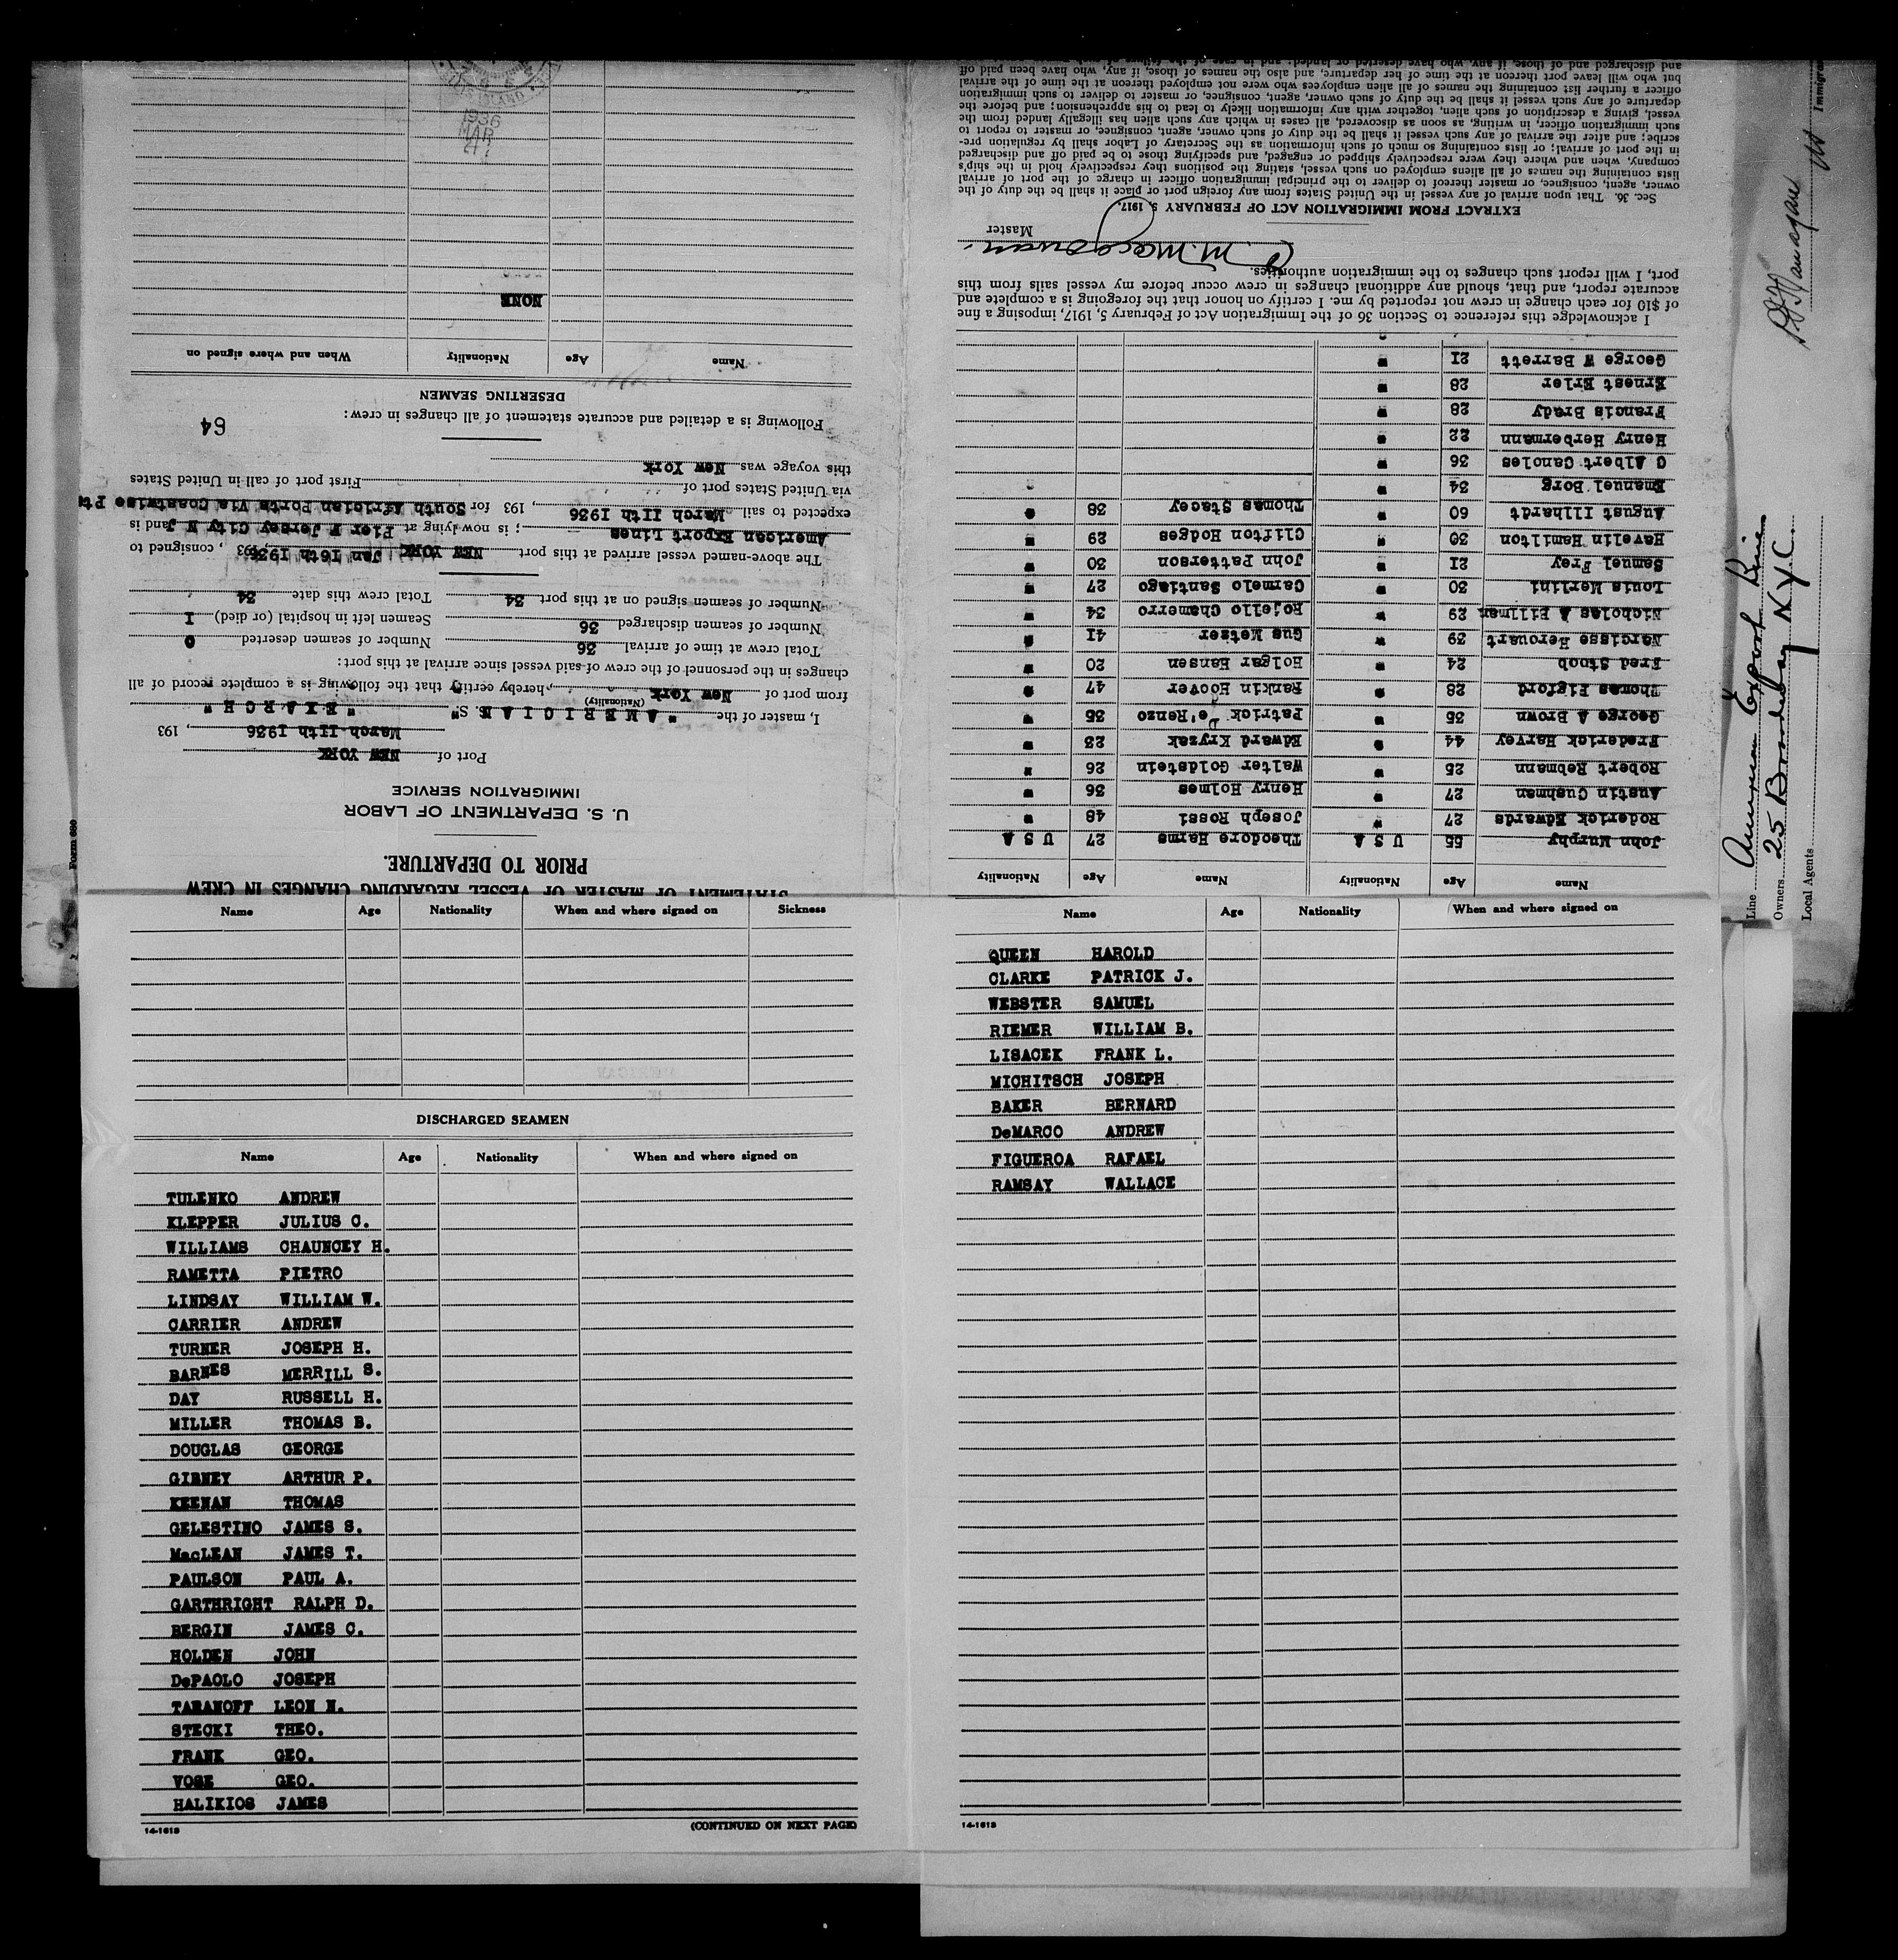 STATEMENT OF MASTER OF VESSEL REGARDING CHANGES IN CREW
PRIOR TO DEPARTURE.
U. S. DEPARTMENT OF LABOR
IMMIGRATION SERVICE
Port of NEW YORK
March 11th 1936, 193
I, master of the "AMERICIAN S. S. "EXARCH"
(Nationality)
from port of New York, hereby certify that the following is a complete record of all
changes in the personnel of the crew of said vessel since arrival at this port:
Total crew at time of arrival 36 Number of seamen deserted 0
Number of seamen discharged 36 Seamen left in hospital (or died) 1
Number of seamen signed on at this port 34 Total crew this date 34
The above-named vessel arrived at this port NEW YORK Jan 16th 1936, 193 , consigned to
American Export Lines ; is now lying at Pier F Jersey City N J and is
expected to sail March 11th 1936, 193 for South Africian Ports Via Coastwise Pts
via United States port of First port of call in United States
this voyage was New York
Following is a detailed and accurate statement of all changes in crew:
64
DESERTING SEAMEN
Name Age Nationality When and where signed on
NONE
1936
MAR
Form 680
Name Age Nationality When and where signed on Sickness
DISCHARGED SEAMEN
Name Age Nationality When and where signed on
TULENKO ANDREW
KLEPPER JULIUS C.
WILLIAMS CHAUNCEY H.
RAMETTA PIETRO
LINDSAY WILLIAM W.
CARRIER ANDREW
TURNER JOSEPH H.
BARNES MERRILL S.
DAY RUSSELL H.
MILLER THOMAS B.
DOUGLAS GEORGE
GIBNEY ARTHUR P.
KEENAN THOMAS
GELESTINO JAMES S.
MacLEAN JAMES T.
PAULSON PAUL A.
GARTHRIGHT RALPH D.
BERGIN JAMES C.
HOLDEN JOHN
DePAOLO JOSEPH
TARANOFF LEON N.
STECKI THEO.
FRANK GEO.
VOSE GEO.
HALIKIOS JAMES
14-1613 (CONTINUED ON NEXT PAGE)
Name Age Nationality When and where signed on
QUEEN HAROLD
CLARKE PATRICK J.
WEBSTER SAMUEL
RIEMER WILLIAM B.
LISACEK FRANK L.
MICHITSCH JOSEPH
BAKER BERNARD
DeMARCO ANDREW
FIGUEROA RAFAEL
RAMSAY WALLACE
14-1613
Name Age Nationality Name Age Nationality
John Murphy 55 U S A Theodore Harms 27 U S A
Roderick Edwards 27 " Joseph Rossi 48 "
Austin Cushman 27 " Henry Holmes 36 "
Robert Rebmann 25 " Walter Goldstein 26 "
Frederick Harvey 44 " Edward Kryzak 23 "
George A Brown 35 " Patrick De'Renzo 35 "
Thomas Pigford 28 " Rankin Hoover 47 "
Fred Stoob 24 " Holgar Hansen 20 "
Narcisse Herouart 39 " Gus Metzer 41 "
Nicholas A Fillman 29 " Rojello Chamerro 34 "
Louis Merlini 30 " Carmelo Santiago 27 "
Samuel Frey 21 " John Patterson 30 "
Havelin Hamilton 30 " Clifton Hodges 29 "
August Illhardt 60 " Thomas Stacey 38 "
Emanuel Borg 34 "
C Albert Canoles 36 "
Henry Herbermann 22 "
Francis Brady 28 "
Ernest Erler 28 "
George W Barrett 21 "
I acknowledge this reference to Section 36 of the Immigration Act of February 5, 1917, imposing a fine
of $10 for each change in crew not reported by me. I certify on honor that the foregoing is a complete and
accurate report, and that, should any additional changes in crew occur before my vessel sails from this
port, I will report such changes to the immigration authorities.
Master
EXTRACT FROM IMMIGRATION ACT OF FEBRUARY 5, 1917.
Sec. 36. That upon arrival of any vessel in the United States from any foreign port or place it shall be the duty of the
owner, agent, consignee, or master thereof to deliver to the principal immigration officer in charge of the port of arrival
lists containing the names of all aliens employed on such vessel, stating the positions they respectively hold in the ship's
company, when and where they were respectively shipped or engaged, and specifying those to be paid off and discharged
in the port of arrival; or lists containing so much of such information as the Secretary of Labor shall by regulation pre-
scribe; and after the arrival of any such vessel it shall be the duty of such owner, agent, consignee, or master to report to
such immigration officer, in writing, as soon as discovered, all cases in which any such alien has illegally landed from the
vessel, giving a description of such alien, together with any information likely to lead to his apprehension; and before the
departure of any such vessel it shall be the duty of such owner, agent, consignee, or master to deliver to such immigration
officer a further list containing the names of all alien employees who were not employed thereon at the time of the arrival
but who will leave port thereon at the time of her departure, and also the names of those, if any, who have been paid off
and discharged and of those, if any, who have deserted or landed; and in case of the failure of
Line American Export Line
Owners 25 Broadway N.Y.C.
Local Agents
Immigra